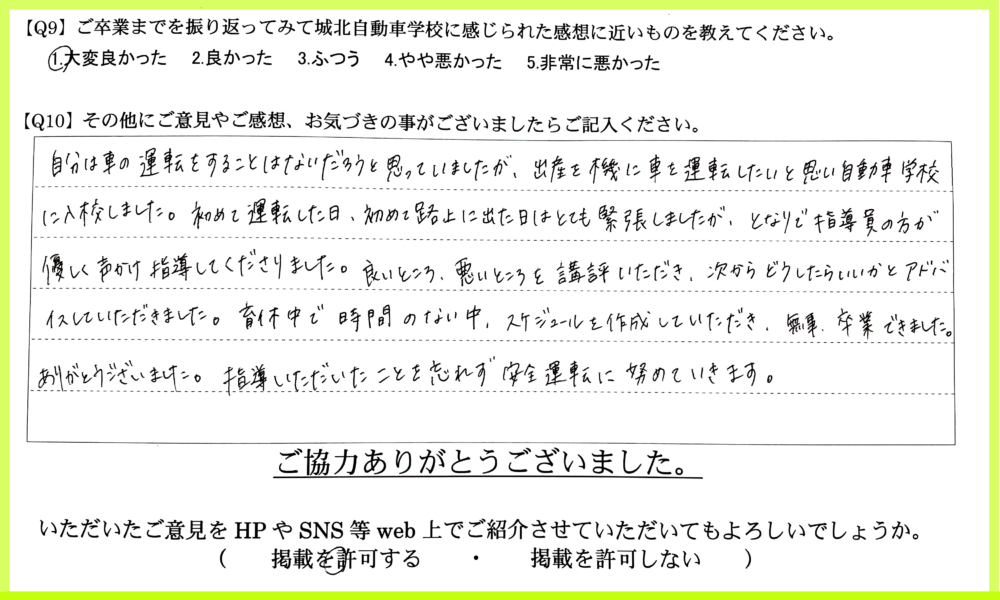 【Q9】ご卒業までを振り返ってみて城北自動車学校に感じられた感想に近いものを教えてください。
1.大変良かった 2.良かった 3.ふつう 4.やや悪かった 5.非常に悪かった
【Q10】その他にご意見やご感想、お気づきの事がございましたらご記入ください。
自分は車の運転をすることはないだろうと思っていましたが、出産を機に車を運転したいと思い自動車学校
に入校しました。初めて運転した日、初めて路上に出た日はとても緊張しましたが、となりで指導員の方が
優しく声かけ指導してくださりました。良いところ、悪いところを講評いただき、次からどうしたらいいかとアドバ
イスしていただきました。育休中で時間のない中、スケジュールを作成していただき、無事、卒業できました。
ありがとうございました。指導いただいたことを忘れず安全運転に努めていきます。
ご協力ありがとうございました。
いただいたご意見を HP や SNS 等 web 上でご紹介させていただいてもよろしいでしょうか。
( 掲載を許可する ・ 掲載を許可しない )